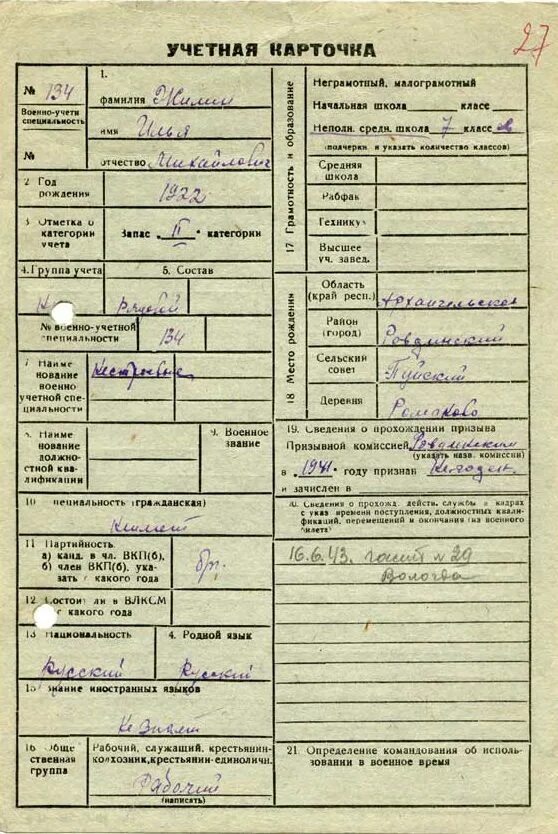 27
УЧЕТНАЯ КАРТОЧКА
№ 134
Военно-учетн
специальность
№
1.
фамилия Жилин
имя Илья
отчество Михайлович
2 Год
рождения
1922
3 Отметка о
категории
учета
Запас „II“ категории
4. Группа учета
5. Состав
рядовой
№ военно-учетной
специальности
134
7 Наиме
нование
военно
учетной спе-
циальности
Нестроевые
8. Наиме
нование
должно-
стной ква-
лификации
9. Военное
звание
10 пециальность (гражданская)
11 Партийность
а) канд. в чл. ВКП(б),
б) член ВКП(б), ука-
зать с какого года
бп.
12. Состоит ли в ВЛКСМ
с какого года
13 Национальность
Русский
4. Родной язык
Русский
15 знание иностранных языков
Не знает
16 Обще
ственная
группа
Рабочий, служащий, крестьянин-
колхозник, крестьянин-единоличн.
Рабочий
(написать)
17 Грамотность и образование
Неграмотный, малограмотный
Начальная школа класс
Неполн. средн. школа 7 класс
(подчеркн. и указать количество классов)
Средняя
школа
Рабфак
Техникум
Высшее
уч. завед.
18 Место рождения
Область
(край респ.)
Архангельская
Район
(город)
Ровдинский
Сельский
совет
Пуйский
Деревня
Романово
19. Сведения о прохождении призыва
Призывной комиссией Ровдинским
(указать назв. комиссии)
в 1941 году признан Негоден
и зачислен в
20. Сведения о прохожд. действ. службы в кадрах
с указ времени поступления, должностных квали-
фикаций, перемещений и окончания (из военного
билета)
16.6.43. госпит N 29
Вологда
21. Определение командования об исполь-
зовании в военное время